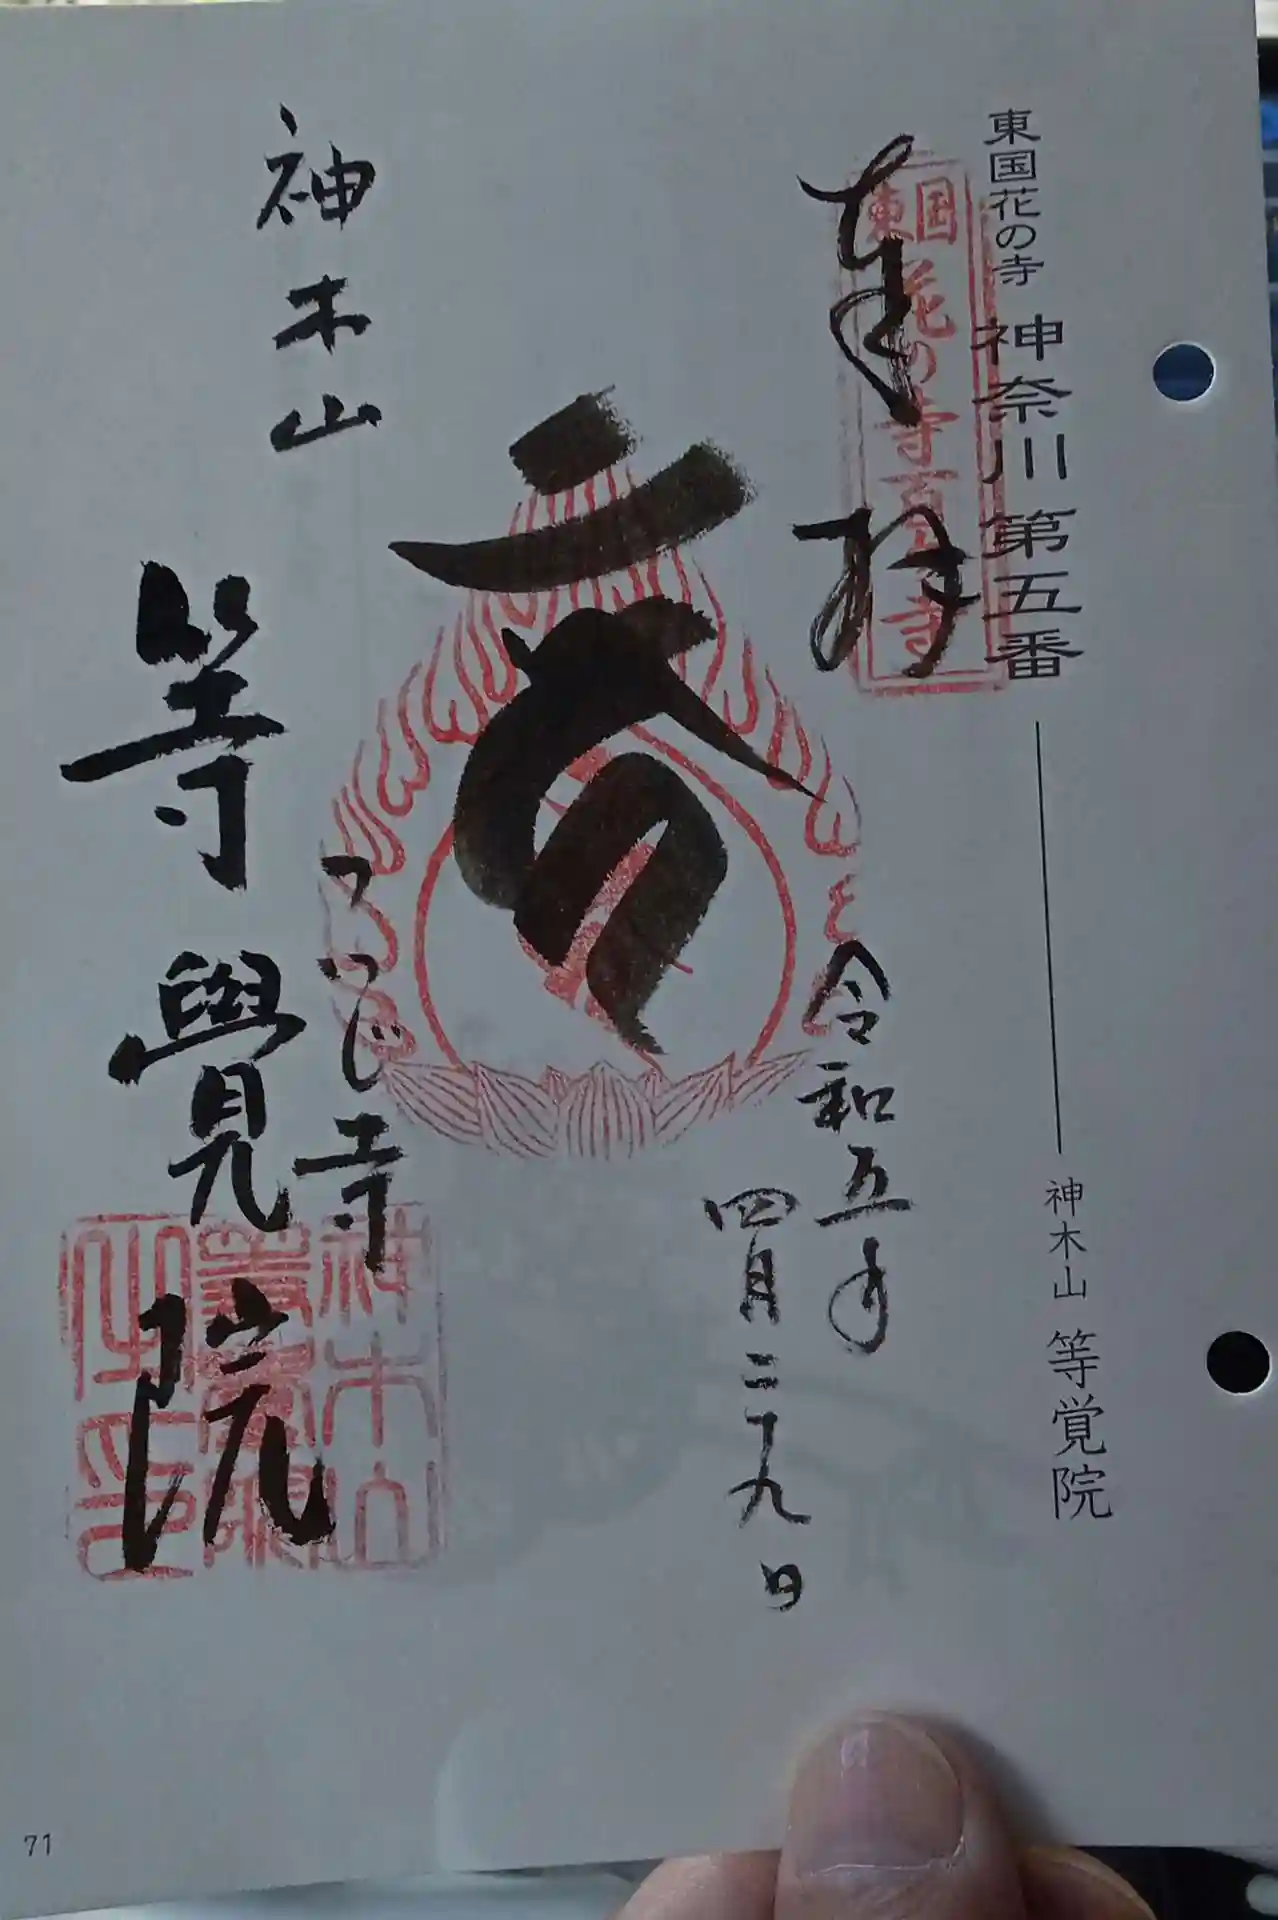 東国花の寺 神奈川第五番 神木山 等覚院
東国花の寺百ヶ寺
奉拝
令和五年
四月二十九日
神木山
つつじ寺
等覺院
神木山
等覺院
之印
71